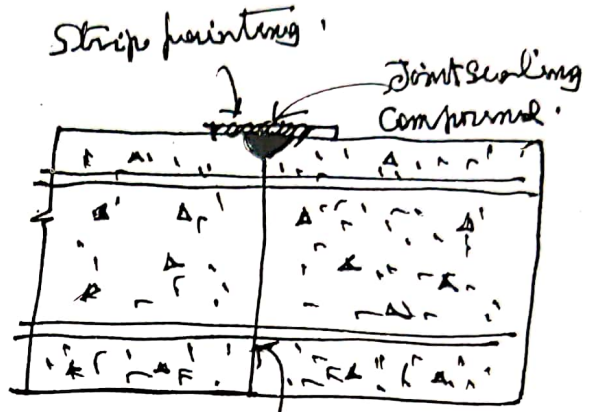 Strip painting.
Joint Sealing
Compound.